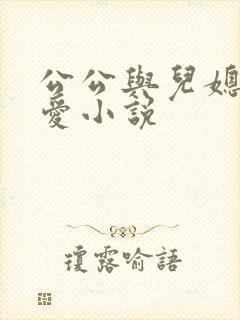 公公與兒媳
愛小說
瓊露喻語